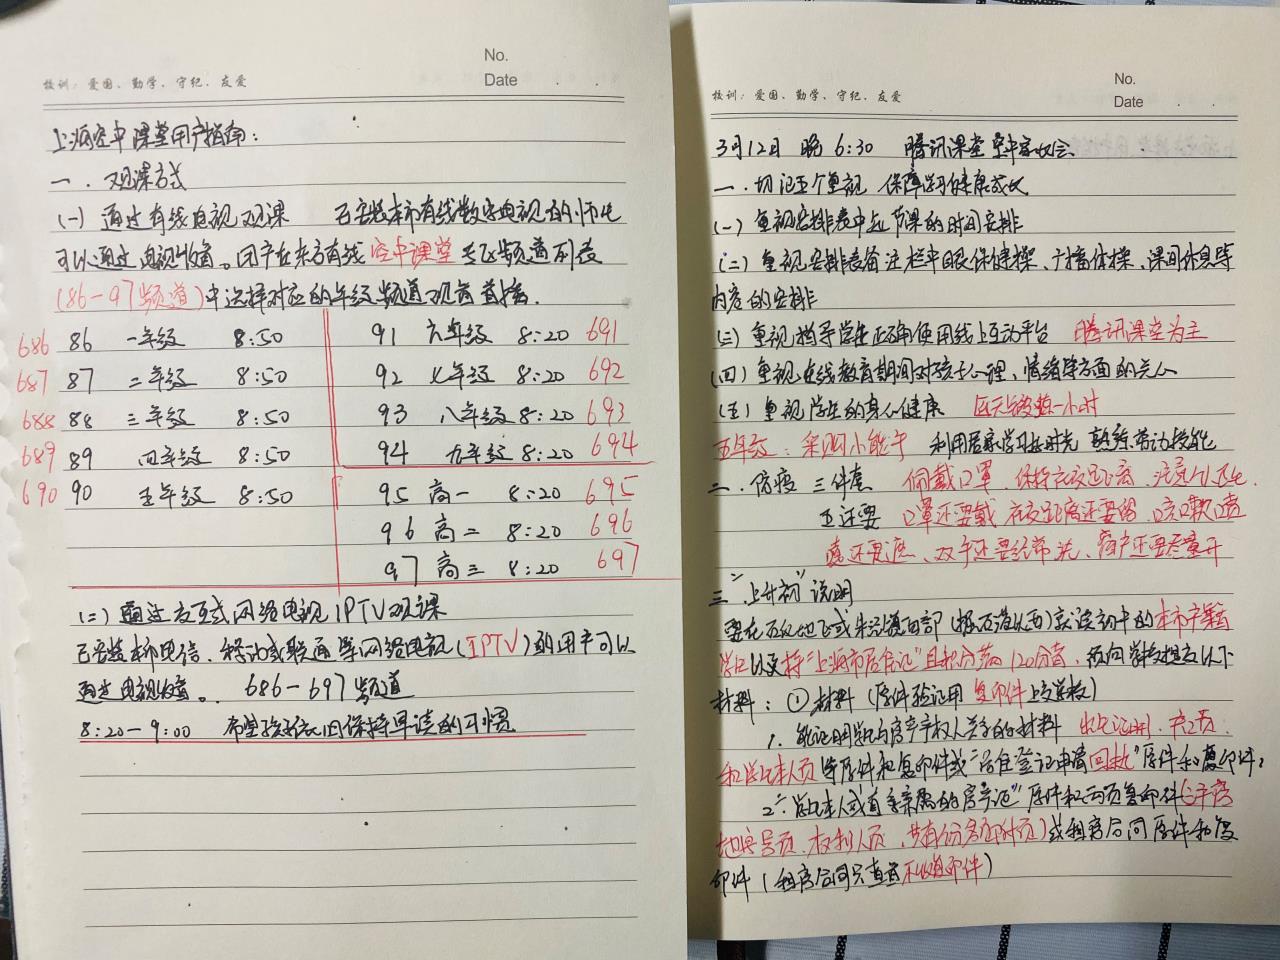 No.
校训：爱国、勤学、守纪、友爱 Date . .
上海空中课堂用户指南：
一．观课方式
(一) 通过有线电视观课 已安装本市有线数字电视的师生
可以通过电视收看。用户在东方有线空中课堂专区频道列表
(86-97频道)中选择对应的年级频道观看直播.
686 86 一年级 8:50 91 六年级 8:20 691
687 87 二年级 8:50 92 七年级 8:20 692
688 88 三年级 8:50 93 八年级 8:20 693
689 89 四年级 8:50 94 九年级 8:20 694
690 90 五年级 8:50 95 高一 8:20 695
96 高二 8:20 696
97 高三 8:20 697
(二) 通过交互式网络电视IPTV观课
已安装本市电信、移动或联通等网络电视(IPTV)的用户可以
通过电视收看。 686-697频道
8:20-9:00 希望孩子依旧保持早读的习惯
No.
校训：爱国、勤学、守纪、友爱 Date . .
3月12日 晚 6:30 腾讯课堂 空中家长会
一．切记五个重视 保障学习健康成长
(一) 重视安排表中每节课的时间安排
(二) 重视安排表备注栏中眼保健操、广播体操、课间休息等
内容的安排
(三) 重视指导学生正确使用线上互动平台 腾讯课堂为主
(四) 重视在线教育期间对孩子心理、情绪等方面的关心
(五) 重视学生的身心健康 每天锻炼一小时
五年级：采购小能手 利用居家学习好时光 熟练劳动技能
二．防疫 三件套 佩戴口罩、保持社交距离、注意个人卫生.
五还要 口罩还要戴 社交距离还要留、咳嗽喷
嚏还要遮、双手还要经常洗、窗户还要尽量开
三 "小升初"说明
要在 就读初中的本市户籍
学生以及持"上海市居住证"且积分满120分者，须向学校提交以下
材料：① 材料 (原件验证用 复印件上交学校)
1. 能证明学生与房产产权人关系的材料 出生证明、户口页
和学生本人页等原件和复印件或"居住登记申请回执"原件和复印件；
2. 学生本人或直系亲属的"房产证"原件和 复印件(
地房号页、权利人页、共有 附页)或租房合同原件和复
印件 (租房合同只查看不收复印件)